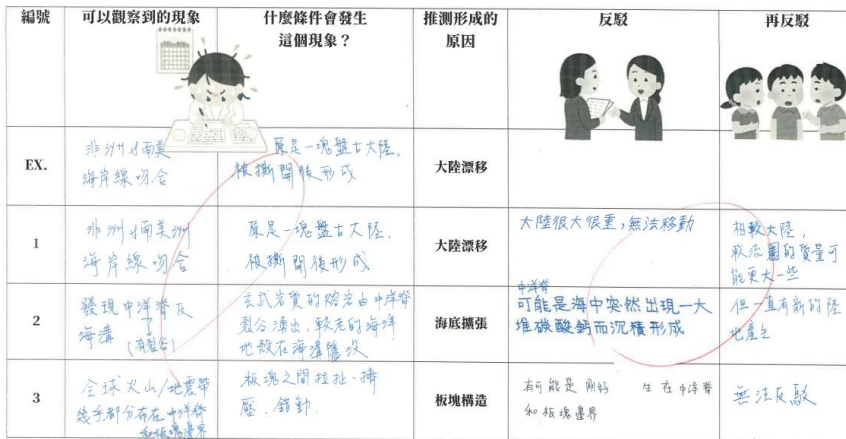 編號
可以觀察到的現象
什麼條件會發生
這個現象？
推測形成的
原因
反駁
再反駁
EX.
非洲與南美
海岸線吻合
原是一塊盤古大陸，
被撕開後形成
大陸漂移
1
非洲與南美洲
海岸線吻合
原是一塊盤古大陸，
被撕開後形成
大陸漂移
大陸很大很重，無法移動
相較大陸，
軟流圈的質量可
能更大一些
2
發現中洋脊及
海溝
(有裂谷)
玄武岩質的熔岩由中洋脊
裂谷湧出，較老的海洋
地殼在海溝隱沒
海底擴張
中洋脊
可能是海中突然出現一大
堆碳酸鈣而沉積形成
但一直有新的陸
地產生
3
全球火山/地震帶
幾乎都分布在中洋脊
和板塊邊界
板塊之間拉扯、擠
壓、錯動.
板塊構造
有可能是 剛好 生在中洋脊
和板塊邊界
無法反駁